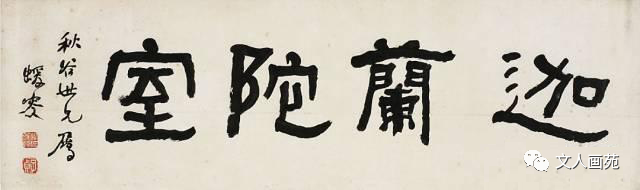 迦蘭陀室
秋谷世兄属
蝯叟
文人画苑